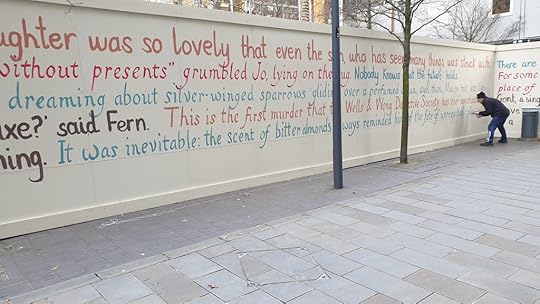 aughter was so lovely that even the sun, who has seen many things was struck with
without presents" grumbled Jo, lying on the rug. Nobody Knows what the future holds.
dreaming about silver-winged sparrows gliding over a perfumed sea,
axe?' said Fern. This is the first murder that the Wells & Wong Detective Society has ever
ning. It was inevitable: the scent of bitter almonds always reminded him of the fate of unrequited
There are
For some
place of
ont, a sing